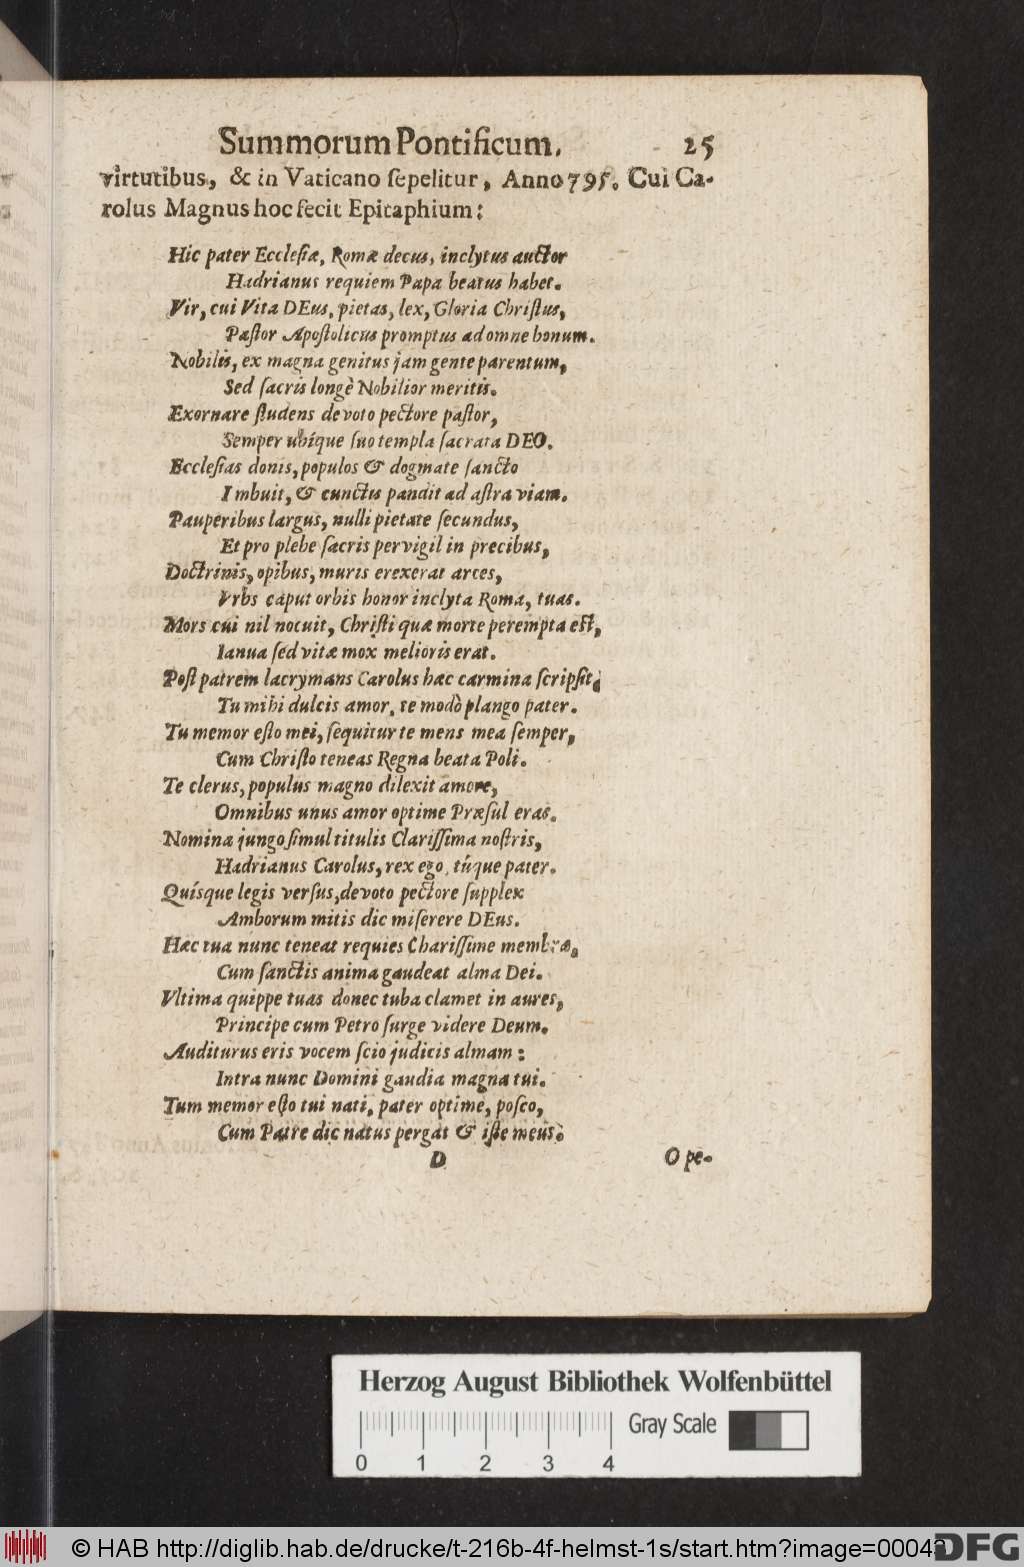 Summorum Pontificum. 25
virtutibus, & in Vaticano ſepelitur, Anno 795. Cui Ca-
rolus Magnus hoc fecit Epitaphium:
Hic pater Eccleſiæ, Romæ decus, inclytus auctor
Hadrianus requiem Papa beatus habet.
Vir, cui Vita DEus, pietas, lex, Gloria Chriſtus,
Paſtor Apoſtolicus promptus ad omne bonum.
Nobilis, ex magna genitus jam gente parentum,
Sed ſacris longè Nobilior meritis.
Exornare ſtudens devoto pectore paſtor,
Semper ubíque ſuo templa ſacrata DEO.
Eccleſias donis, populos & dogmate ſancto
Imbuit, & cunctis pandit ad aſtra viam.
Pauperibus largus, nulli pietate ſecundus,
Et pro plebe ſacris pervigil in precibus,
Doctrinis, opibus, muris erexerat arces,
Vrbs caput orbis honor inclyta Roma, tuas.
Mors cui nil nocuit, Chriſti quæ morte perempta eſt,
Ianua ſed vitæ mox melioris erat.
Poſt patrem lacrymans Carolus hæc carmina ſcripſit,
Tu mihi dulcis amor, te modò plango pater.
Tu memor eſto mei, ſequitur te mens mea ſemper,
Cum Chriſto teneas Regna beata Poli.
Te clerus, populus magno dilexit amore,
Omnibus unus amor optime Præſul eras.
Nomina jungo ſimul titulis Clariſſima noſtris,
Hadrianus Carolus, rex ego, túque pater.
Quíſque legis verſus, devoto pectore ſupplex
Amborum mitis dic miſerere DEus.
Hæc tua nunc teneat requies Chariſſime membra,
Cum ſanctis anima gaudeat alma Dei.
Vltima quippe tuas donec tuba clamet in aures,
Principe cum Petro ſurge videre Deum.
Auditurus eris vocem ſcio judicis almam:
Intra nunc Domini gaudia magna tui.
Tum memor eſto tui nati, pater optime, poſco,
Cum Patre dic natus pergat & iſte meus.
D O pe-
Herzog August Bibliothek Wolfenbüttel
Gray Scale
0 1 2 3 4
© HAB http://diglib.hab.de/drucke/t-216b-4f-helmst-1s/start.htm?image=00043
DFG